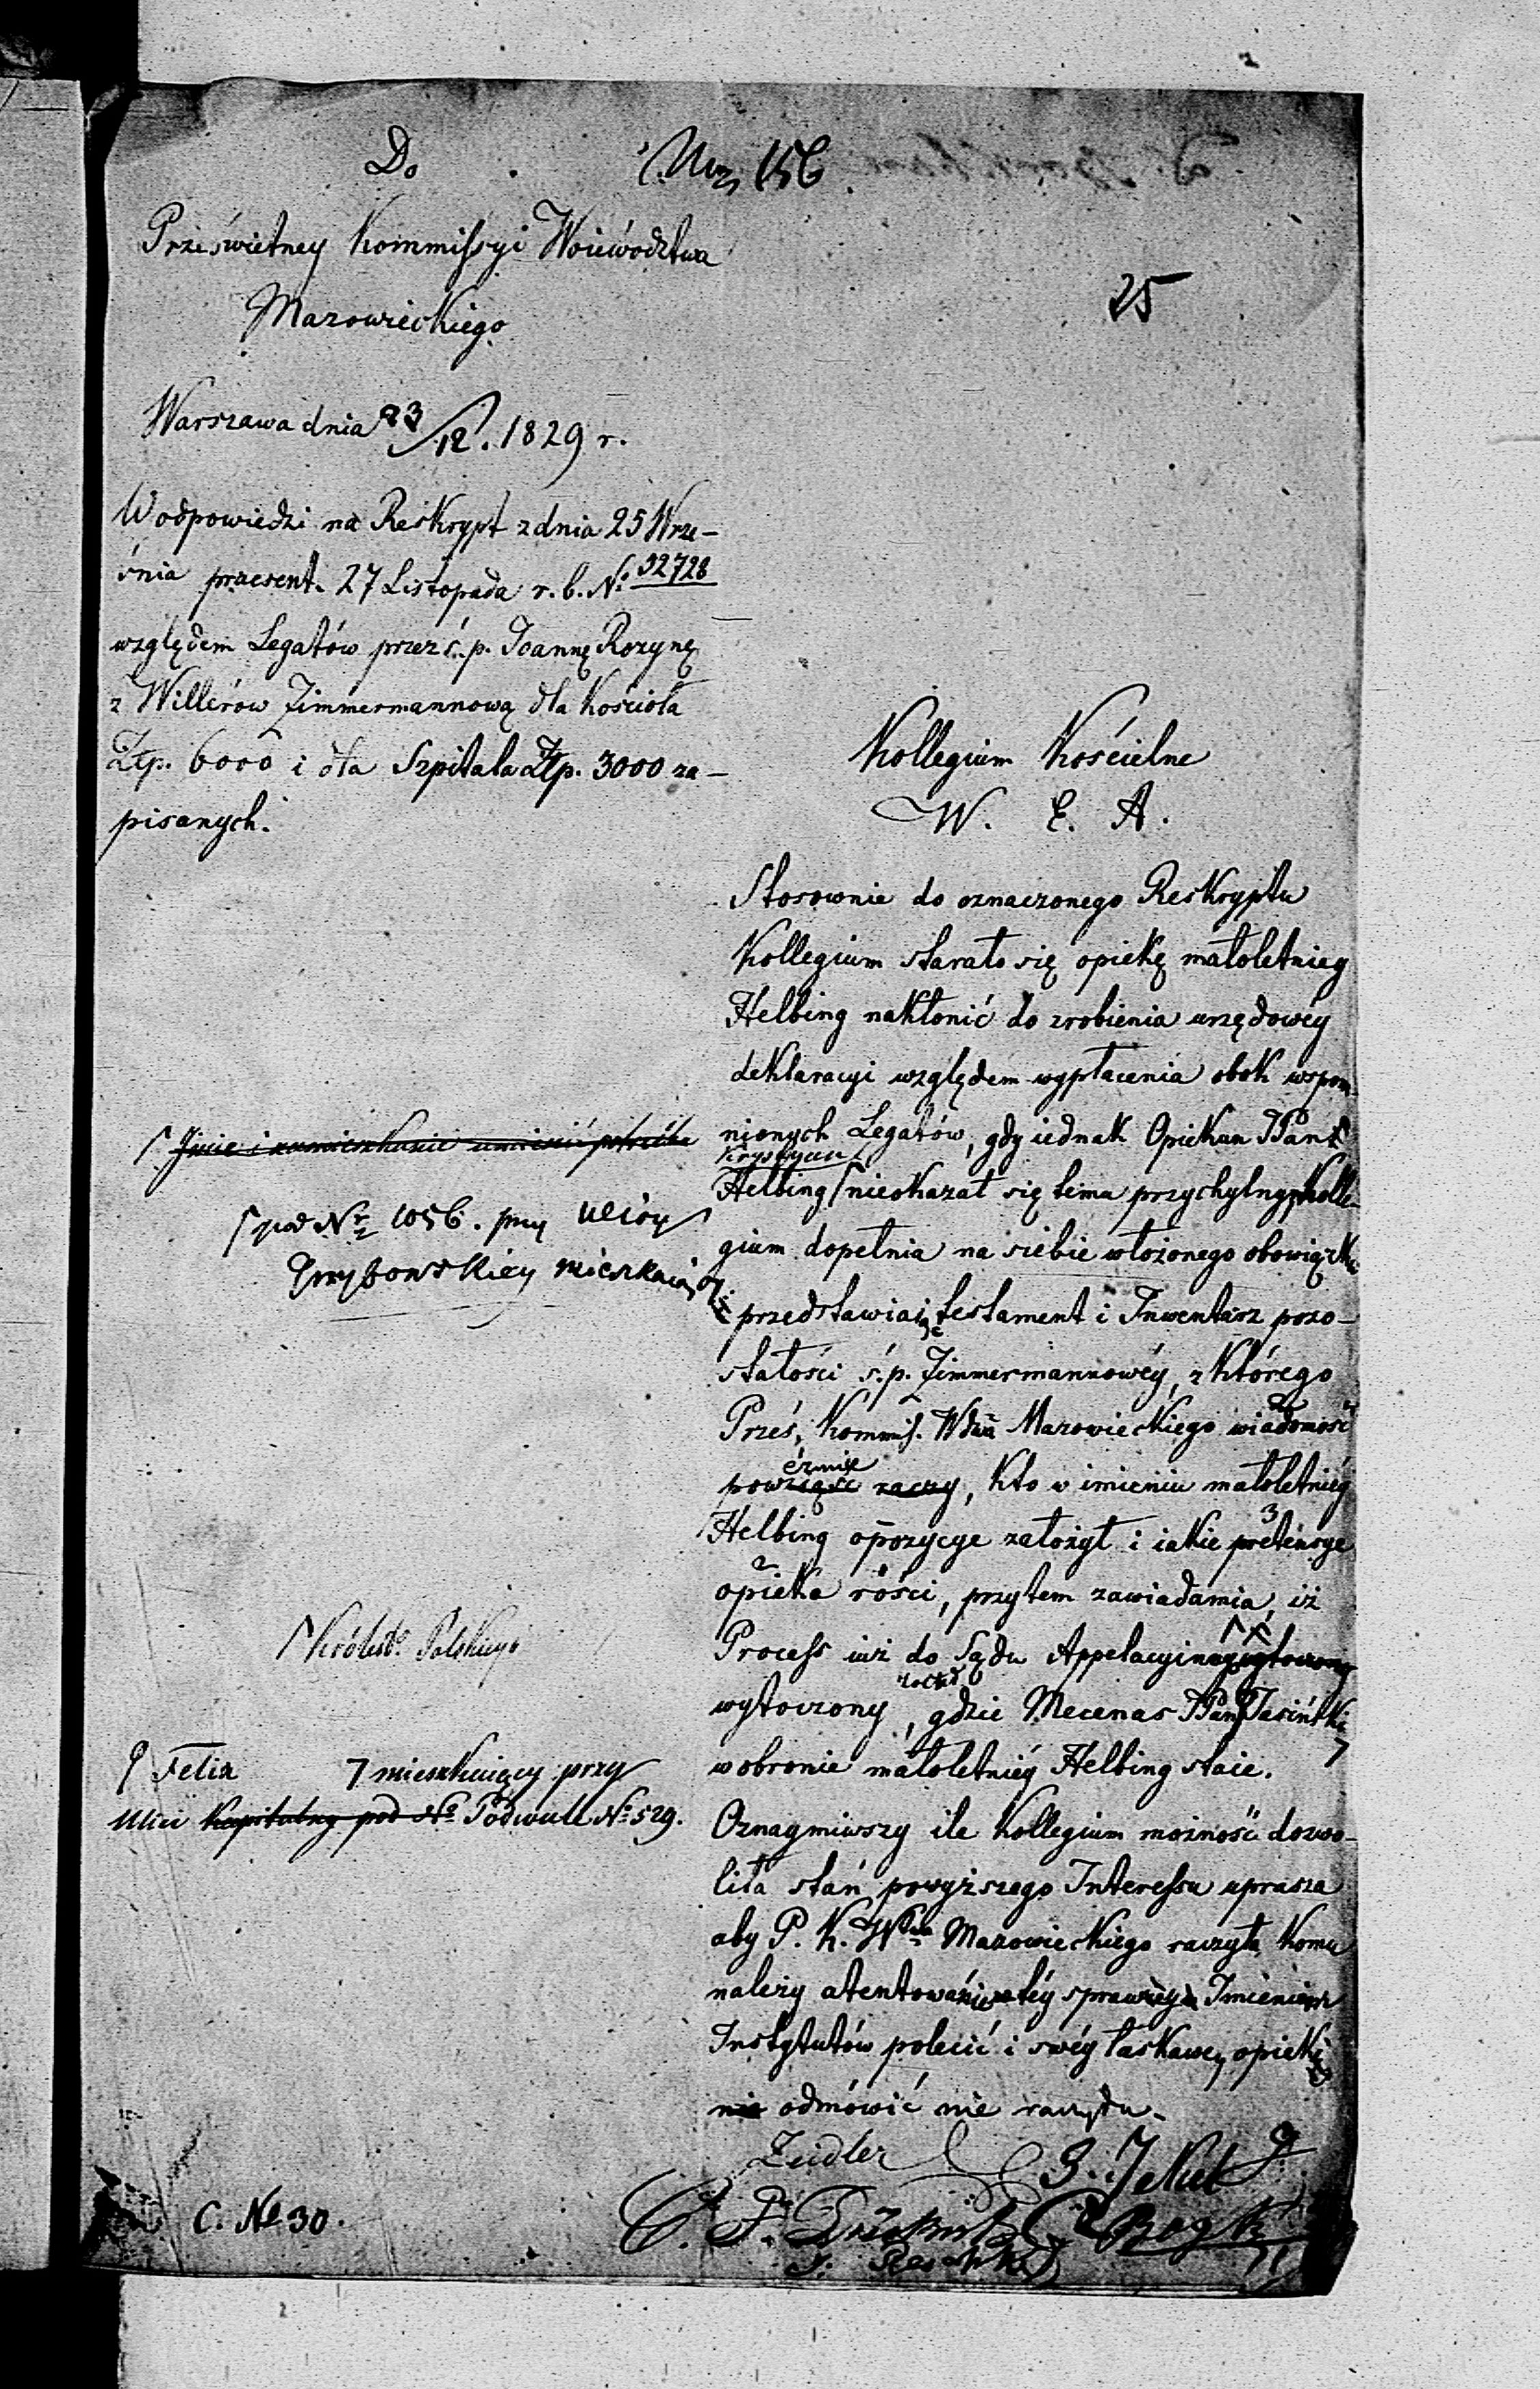 Do
Nro 156
Prześwietney Kommissyi Woiewództwa
Mazowieckiego
25
Warszawa dnia 23/12. 1829 r.
W odpowiedzi na Reskrypt z dnia 25 Wrze-
śnia praesent. 27 Listopada r. b. No 92728
względem Legatów przez ś. p. Joannę Rozynę
z Willerów Zimmermannową dla Kościoła
Złp. 6000 i dla Szpitala Złp. 3000 za-
pisanych.
Kollegium Kościelne
W. E. A.
Stosownie do oznaczonego Reskryptu
Kollegium starało się opiekę małoletniey
Helbing nakłonić do zrobienia urzędowéy
deklaracyi względem wypłacenia obok wspom-
nionych Legatów, gdy iednak Opiekun JPan
Krystyan
Helbing nieokazał się temu przychylny, Kolle-
gium dopełnia na siebie włożonego obowiązku
przedstawiaiąc testament i Inwentarz pozo-
stałości ś. p. Zimmermannowéy, z którego
Prześ. Kommis. Wdwa Mazowieckiego wiadomość
poweźmie raczy, kto w imieniu małoletniéy
Helbing opozycye założył i iakie pretensye
opieka rości, przytem zawiadamia, iż
Process iuż do Sądu Appelacyinego
wytoczony został, gdzie Mecenas JPan Jasiński
w obronie małoletniéy Helbing staie.
Oznaymiwszy ile Kollegium możność dozwo-
liła stan powyższego Interessu uprasza
aby P. K. Wdwa Mazowieckiego raczyła komu
należy atentowanie téy sprawy Imieniem
Instytutów polecić i swéy łaskawey opieki
nie odmówić nie raczyła.
Zeidler J. Jekel
pod Nr 1056. przy ulicy
Grzybowskiey mieszkaiący
Królest. Polskiego
Felix 7 mieszkaiący przy
ulici Kapitulny pod No Podwale No 529.
C. No 30.